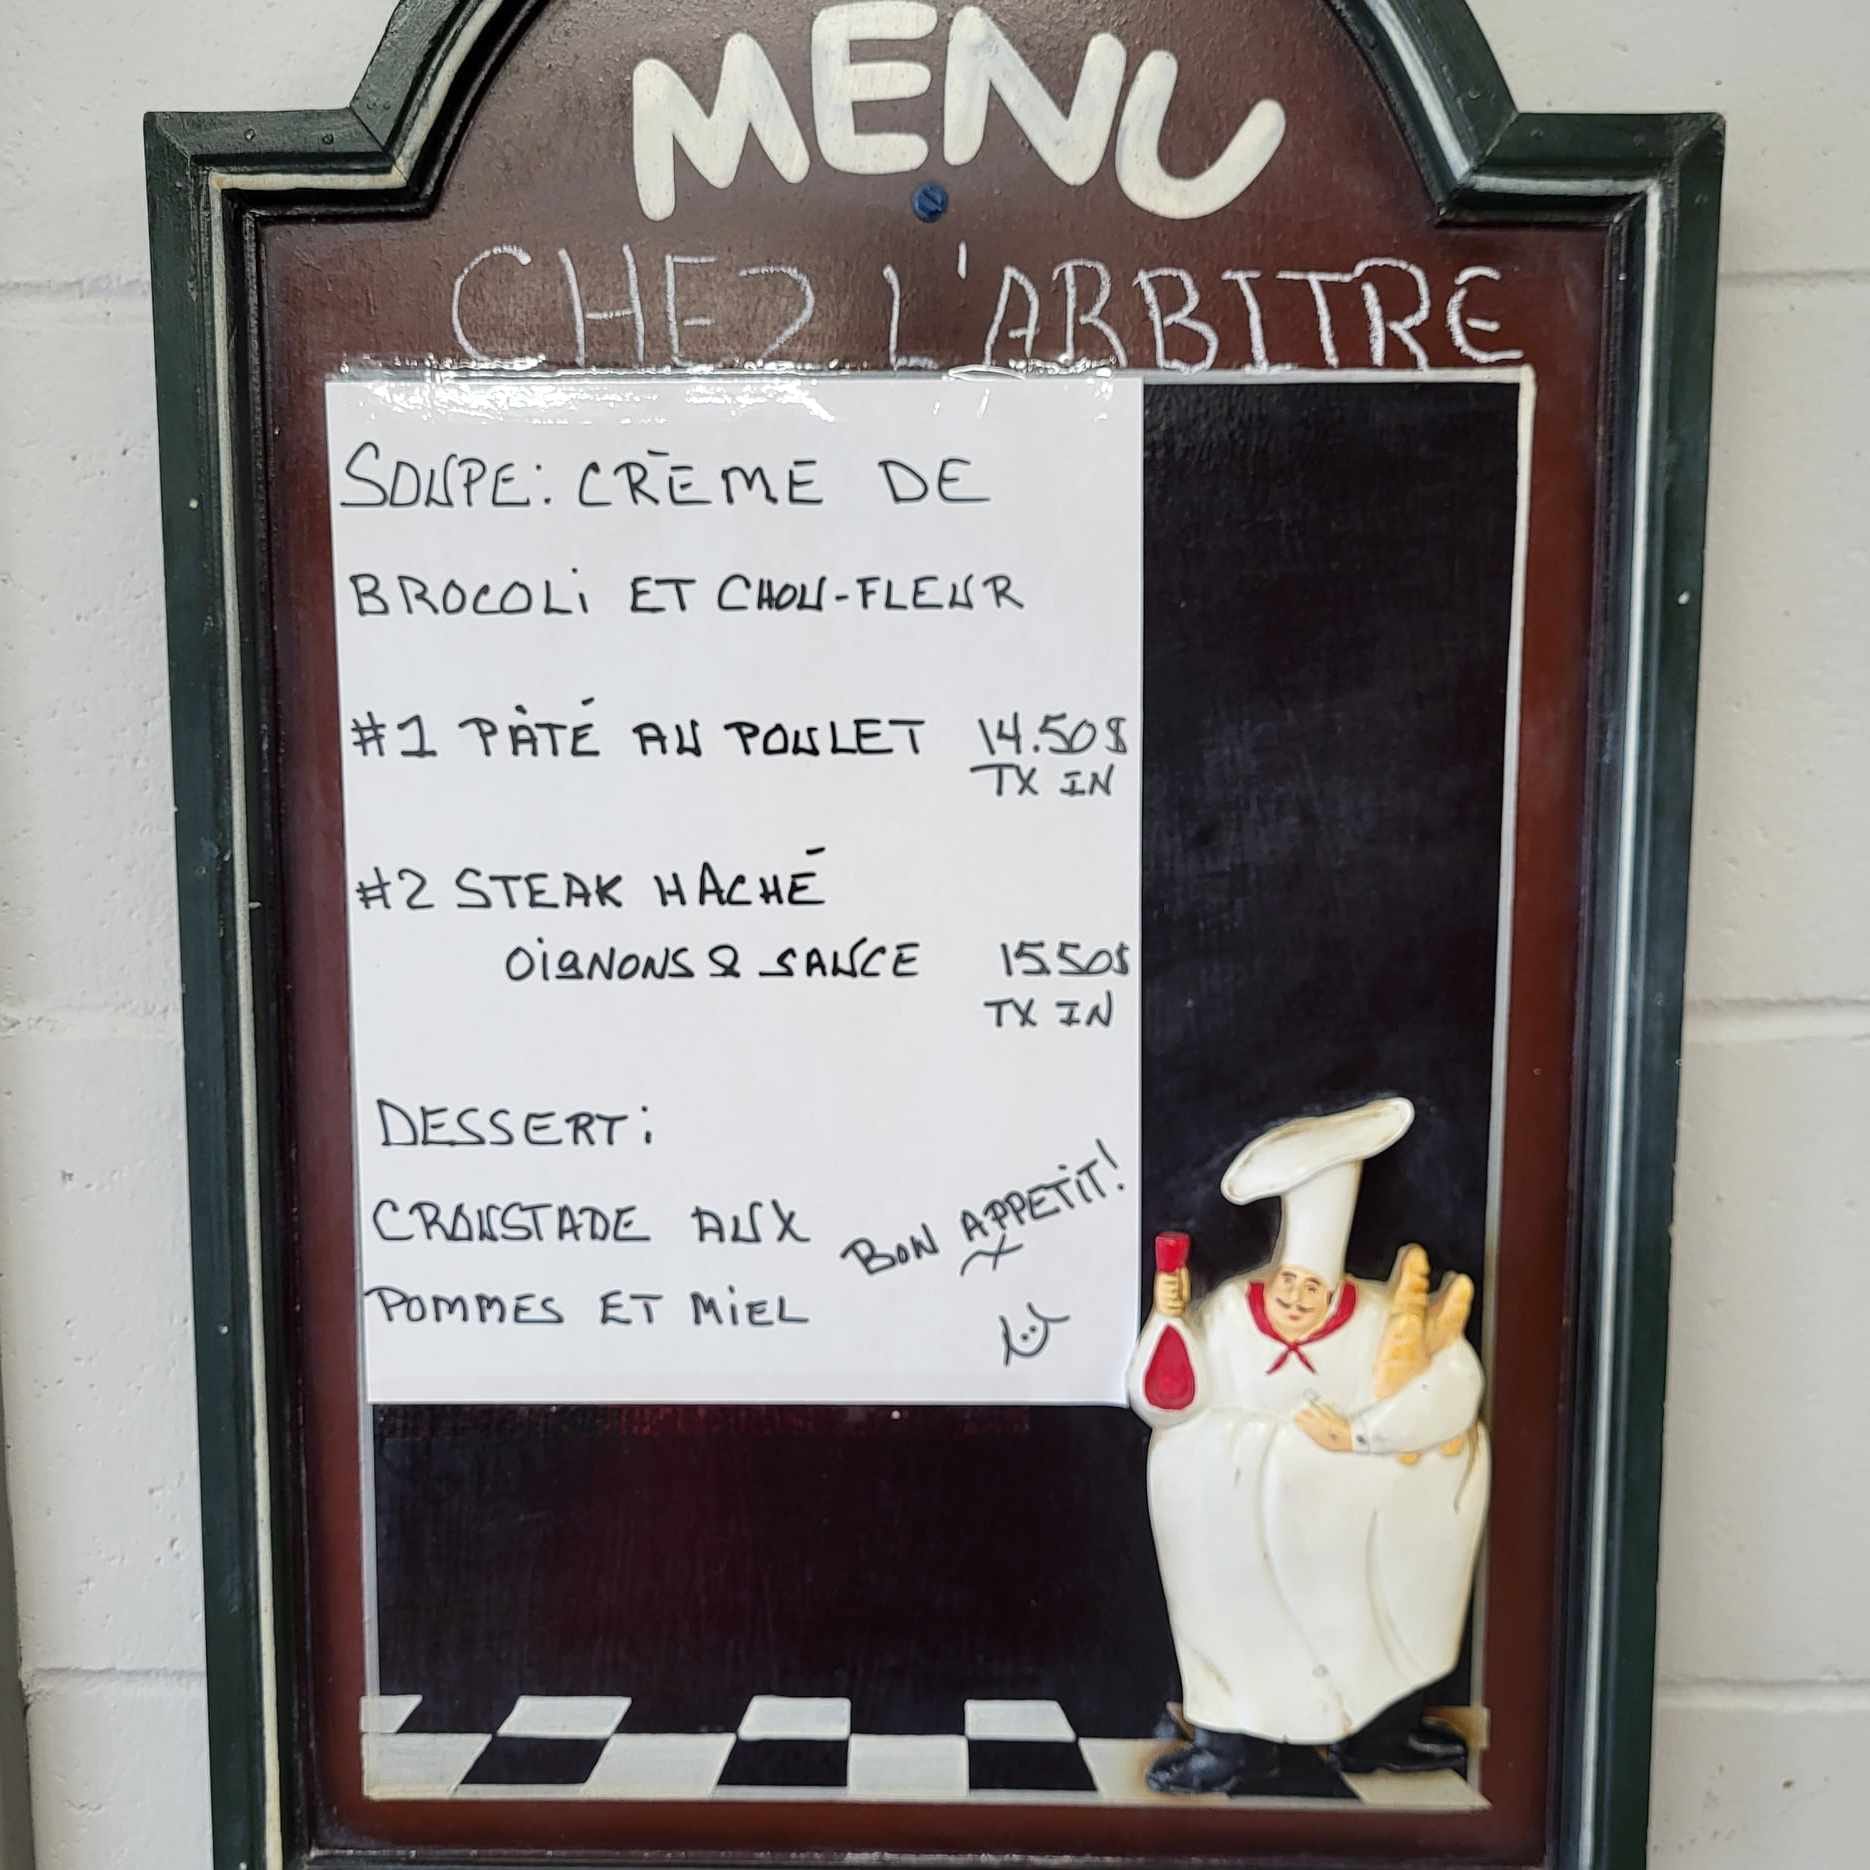 MENU
CHEZ L'ARBITRE
SOUPE: CRÈME DE
BROCOLi ET CHOU-FLEUR
#1 PÂTÉ AU POULET 14.50$
TX IN
#2 STEAK HACHÉ
OiGNONS & SAUCE 15.50$
TX IN
DESSERT:
CROUSTADE AUX
POMMES ET MiEL
BON APPETiT!